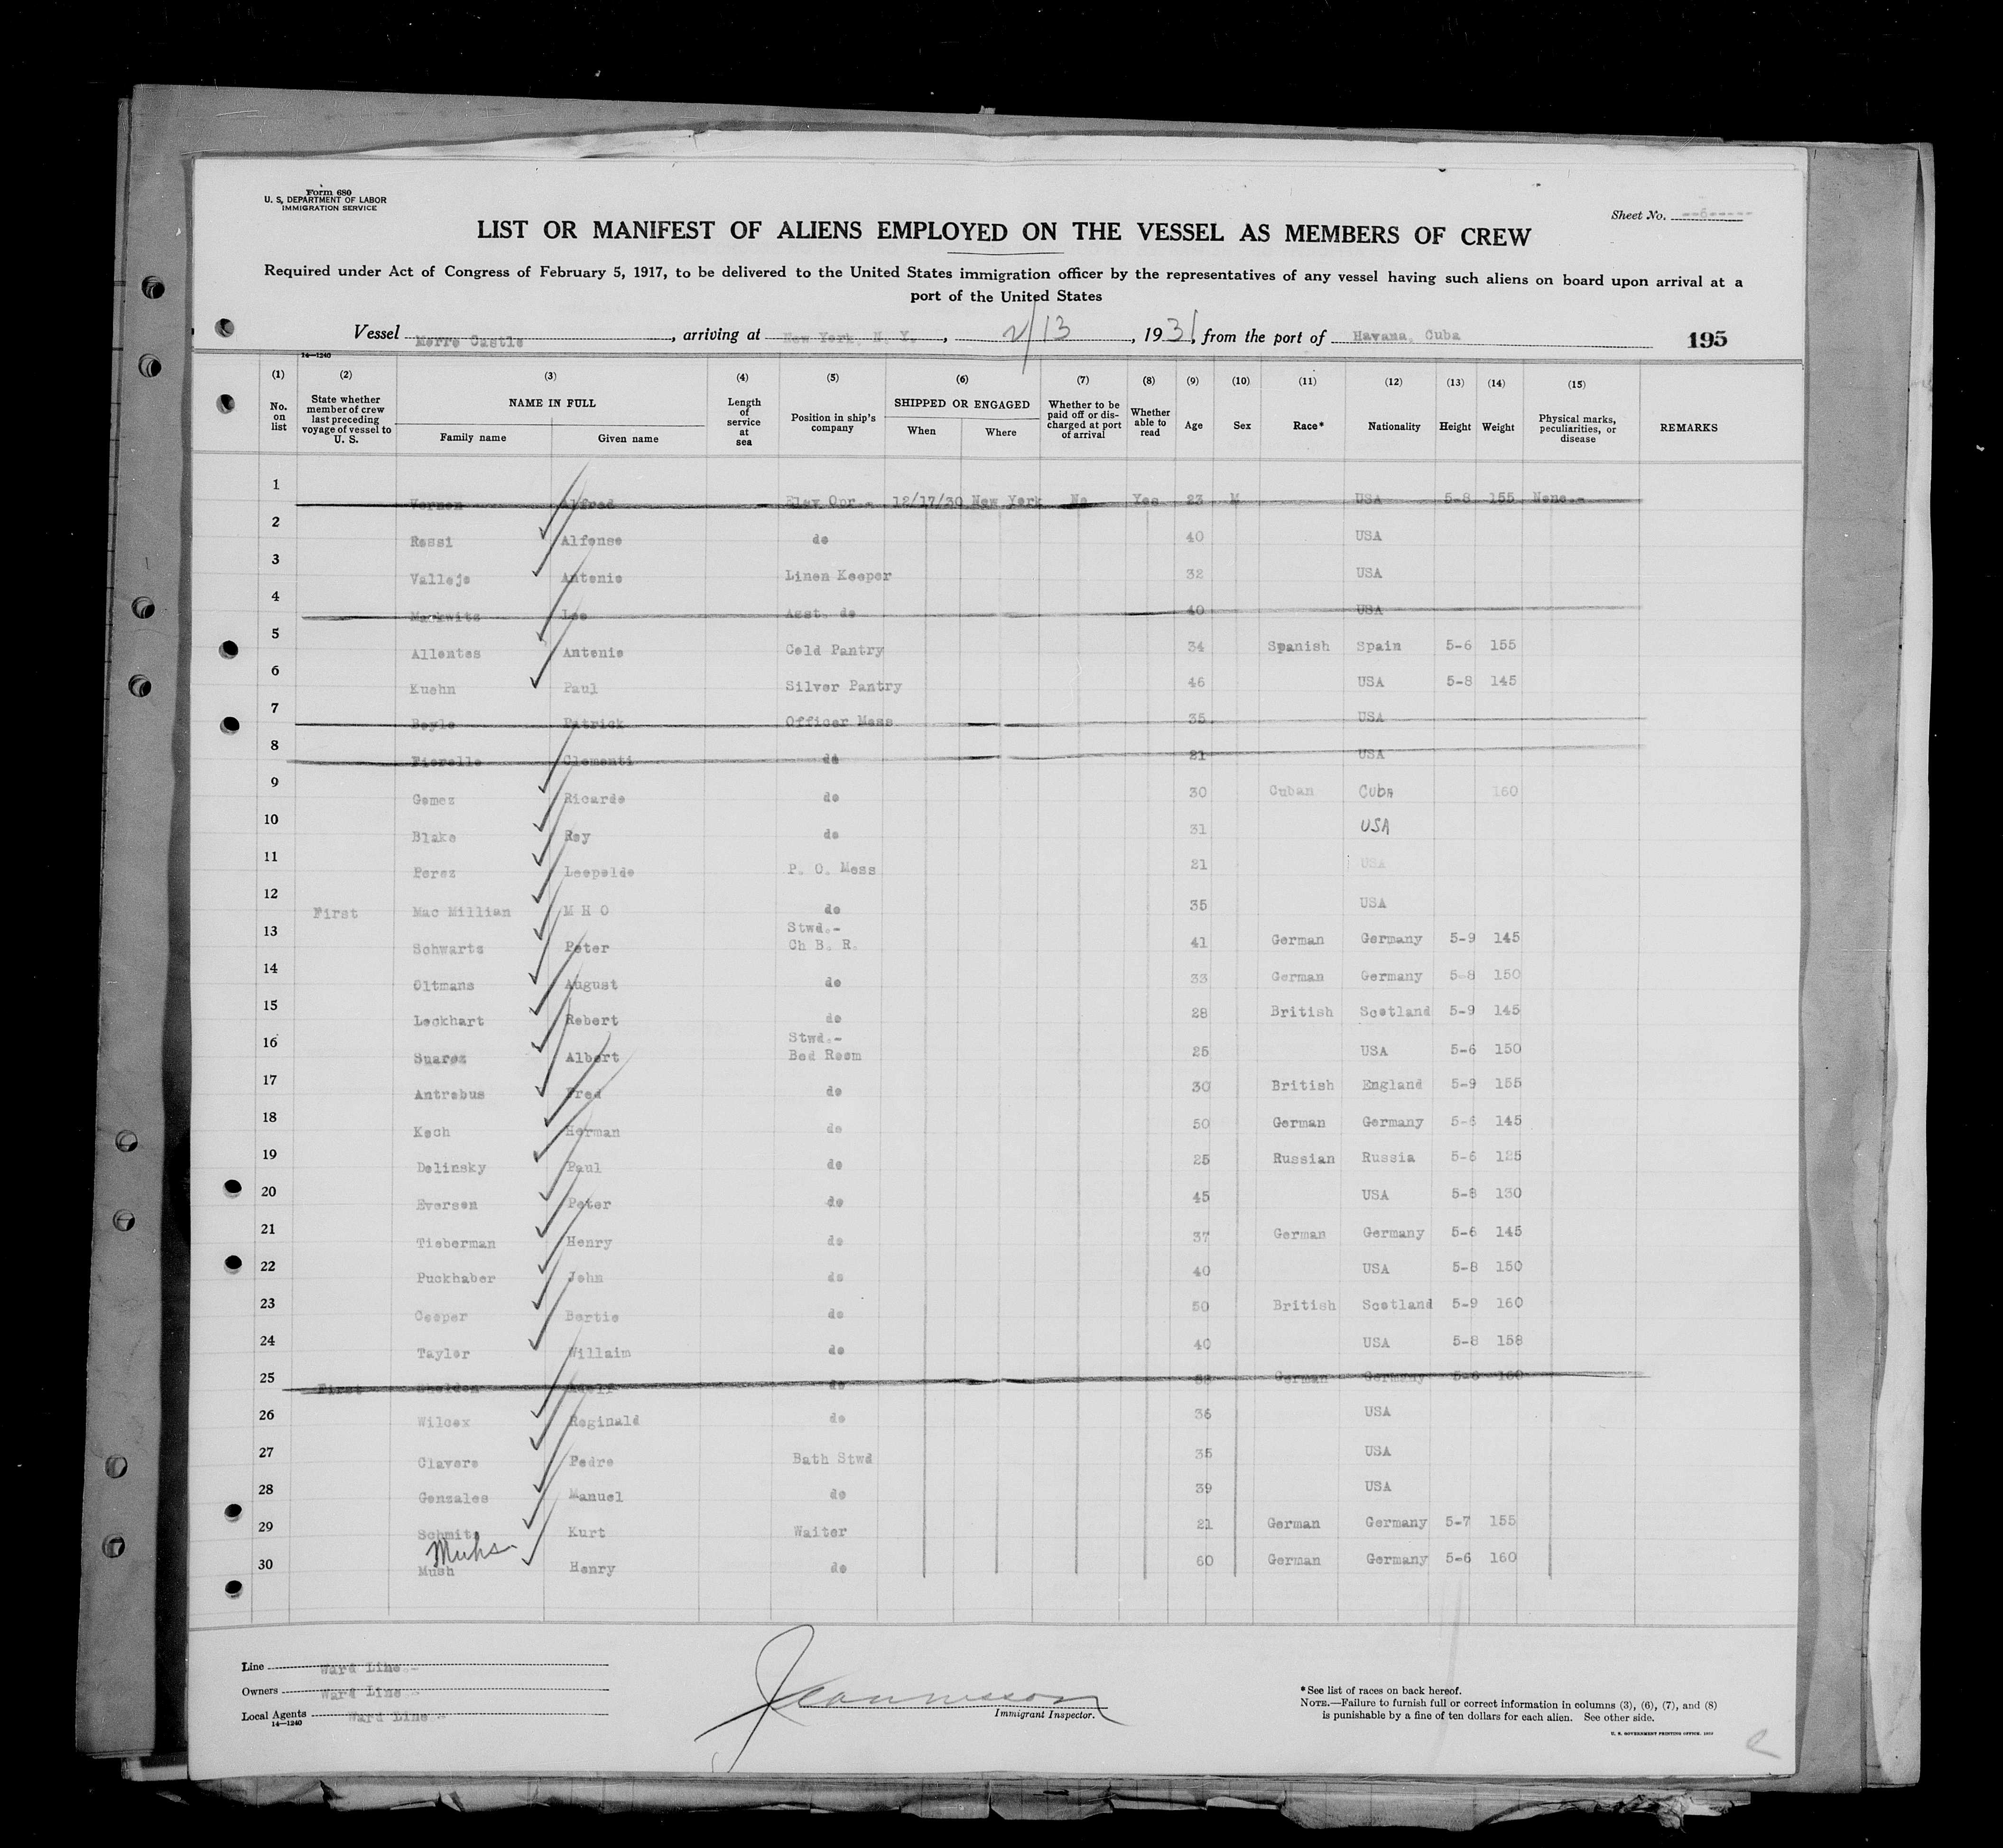 Form 680
U. S. DEPARTMENT OF LABOR
IMMIGRATION SERVICE
Sheet No. --6-----
LIST OR MANIFEST OF ALIENS EMPLOYED ON THE VESSEL AS MEMBERS OF CREW
Required under Act of Congress of February 5, 1917, to be delivered to the United States immigration officer by the representatives of any vessel having such aliens on board upon arrival at a
port of the United States
Vessel Morro Castle, arriving at New York, N. Y., 2/13, 1931, from the port of Havana, Cuba 195
14—1240
(1) (2) (3) (4) (5) (6) (7) (8) (9) (10) (11) (12) (13) (14) (15)
No. on list State whether member of crew last preceding voyage of vessel to U. S. NAME IN FULL Family name Given name Length of service at sea Position in ship's company SHIPPED OR ENGAGED When Where Whether to be paid off or discharged at port of arrival Whether able to read Age Sex Race* Nationality Height Weight Physical marks, peculiarities, or disease REMARKS
1 Vernon Alfred Elav Opr.- 12/17/30 New York No Yes 23 M USA 5-8 155 None.-
2 Rossi Alfonso do 40 USA
3 Vallejo Antonio Linen Keeper 32 USA
4 Markwitz Leo Asst. do 40 USA
5 Allontes Antonio Cold Pantry 34 Spanish Spain 5-6 155
6 Kuehn Paul Silver Pantry 46 USA 5-8 145
7 Boyle Patrick Officer Mess 35 USA
8 Fiorello Clementi do 21 USA
9 Gomez Ricardo do 30 Cuban Cuba 160
10 Blake Roy do 31 USA
11 Perez Leopoldo P. O. Mess 21 USA
12 First Mac Millian M H O do 35 USA
13 Schwarts Peter Stwd.- Ch B. R. 41 German Germany 5-9 145
14 Oltmans August do 33 German Germany 5-8 150
15 Lockhart Robert do 28 British Scotland 5-9 145
16 Suarez Albert Stwd.- Bed Room 25 USA 5-6 150
17 Antrobus Fred do 30 British England 5-9 155
18 Koch Herman do 50 German Germany 5-6 145
19 Dolinsky Paul do 25 Russian Russia 5-6 125
20 Eversen Peter do 45 USA 5-8 130
21 Tieberman Henry do 37 German Germany 5-6 145
22 Puckhaber John do 40 USA 5-8 150
23 Cooper Bertie do 50 British Scotland 5-9 160
24 Taylor Willaim do 40 USA 5-8 158
25 First Sheldon Adolf do German Germany 5-6 160
26 Wilcox Reginald do 36 USA
27 Clavero Pedro Bath Stwd 35 USA
28 Gonzales Manuel do 39 USA
29 Schmitz Kurt Waiter 21 German Germany 5-7 155
Muhs.
30 Mush Henry do 60 German Germany 5-6 160
Line Ward Line.-
Owners Ward Line -
Local Agents Ward Line -
14—1240
Immigrant Inspector.
*See list of races on back hereof.
NOTE.—Failure to furnish full or correct information in columns (3), (6), (7), and (8)
is punishable by a fine of ten dollars for each alien. See other side.